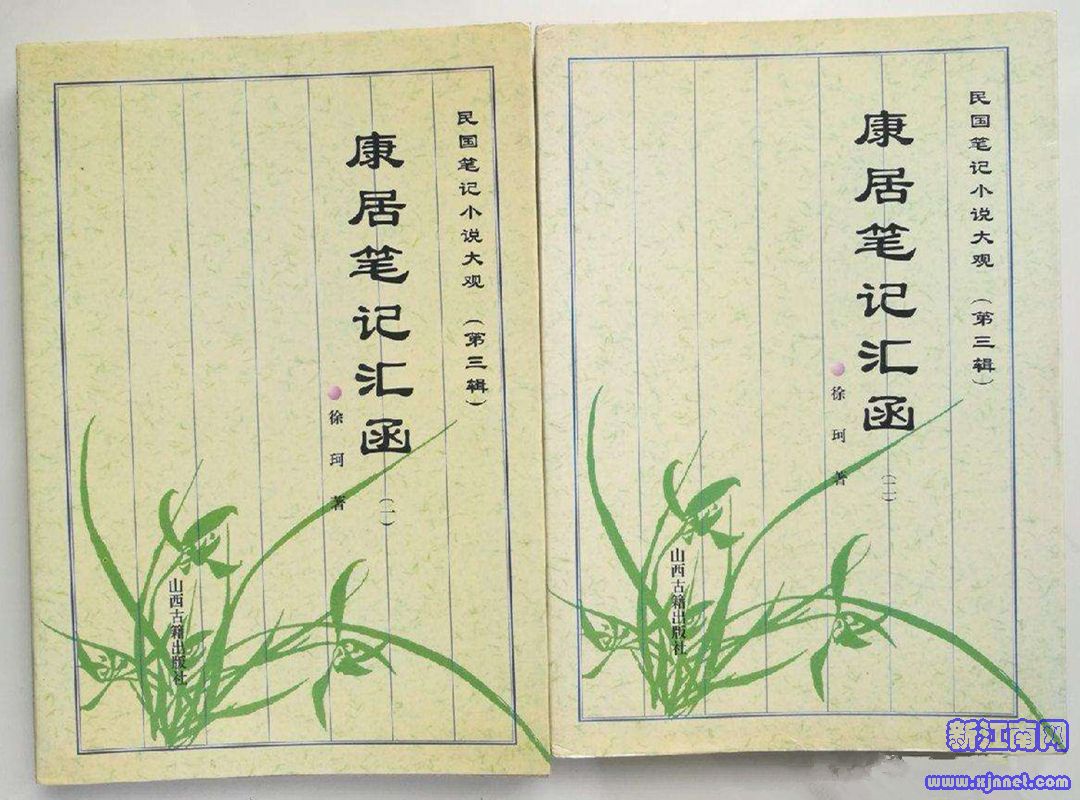 民国笔记小说大观（第三辑）
康居笔记汇函
（一）
徐珂著
山西古籍出版社
民国笔记小说大观（第三辑）
康居笔记汇函
（二）
徐珂著
山西古籍出版社
新江南网
www.xjnnet.com